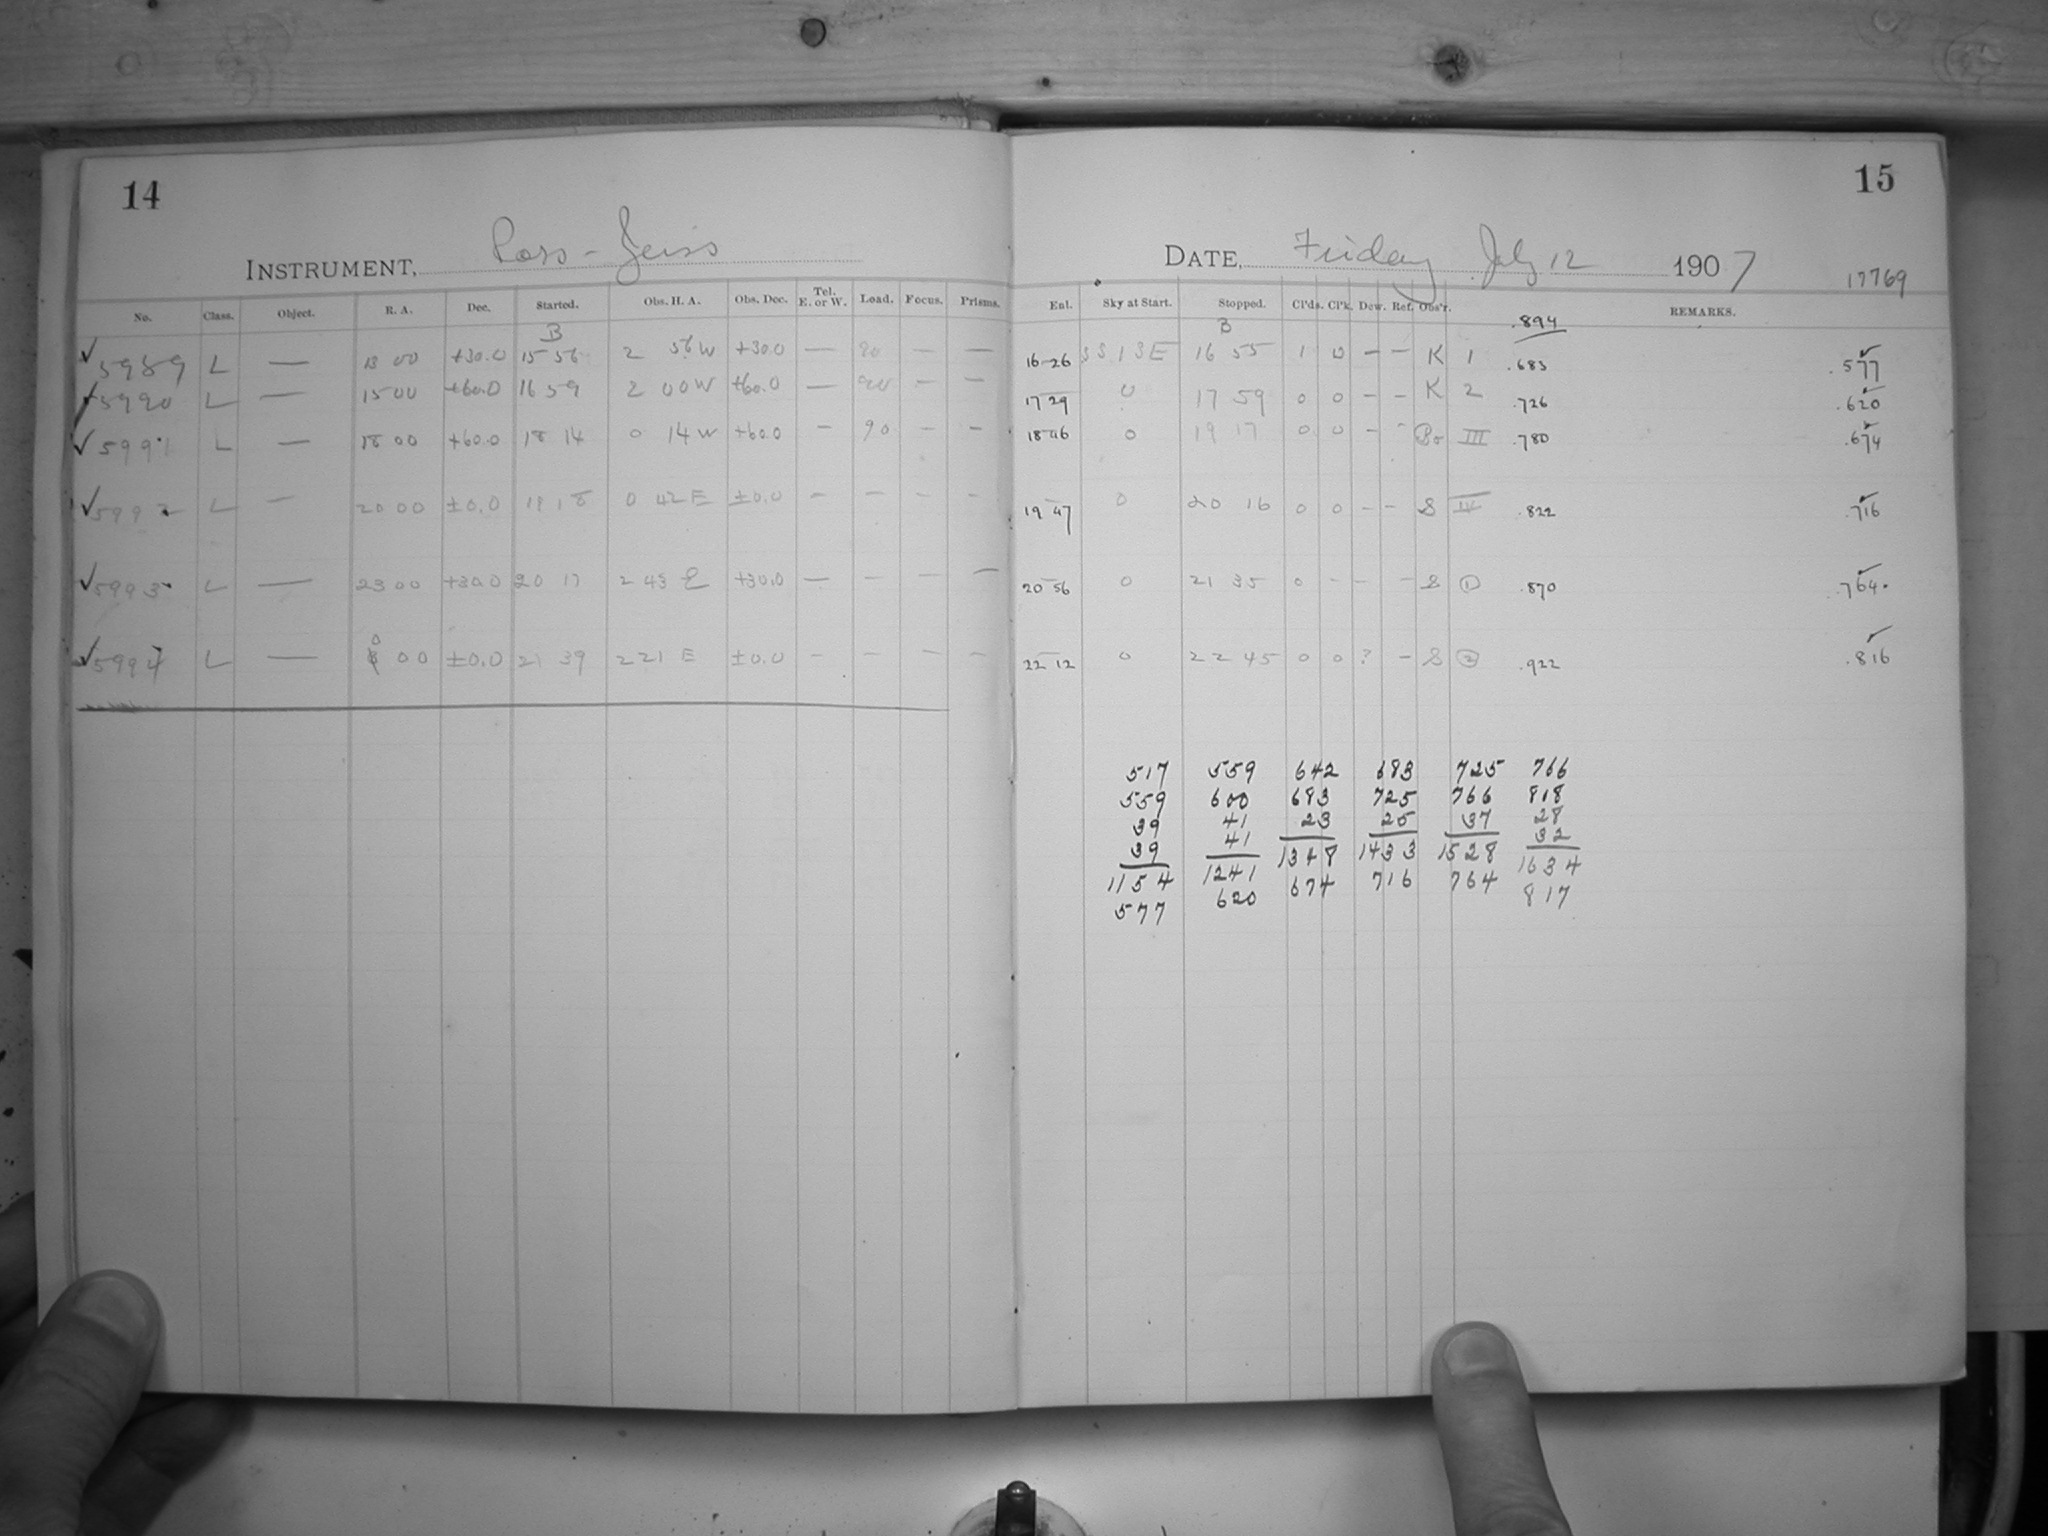 14
INSTRUMENT, Ross-Zeiss
No. Class. Object. R. A. Dec. Started. Obs. H. A. Obs. Dec. Tel. E. or W. Load. Focus. Prisms.
B
✓ 5989 L — 13 00 +30.0 15 56 2 56 W +30.0 — 90 — —
✓ 5990 L — 15 00 +60.0 16 59 2 00 W +60.0 — 90 — —
✓ 5991 L — 18 00 +60.0 18 14 0 14 W +60.0 — 90 — —
✓ 5992 L — 20 00 ±0.0 19 18 0 42 E ±0.0 — — — —
✓ 5993 L — 23 00 +30.0 20 17 2 43 E +30.0 — — — —
✓ 5994 L — 0 00 ±0.0 21 39 2 21 E ±0.0 — — — —
15
DATE, Friday July 12 1907
17769
Enl. Sky at Start. Stopped. Cl'ds. Cl'k. Dew. Ref. Obs'r. REMARKS.
B .894
16 26 SS13E 16 55 1 0 — — K 1 .683 .577
17 29 0 17 59 0 0 — — K 2 .726 .620
18 46 0 19 17 0 0 — — Po III .780 .674
19 47 0 20 16 0 0 — — S IV .822 .716
20 56 0 21 35 0 — — — S ① .870 .764
22 12 0 22 45 0 0 ? — S ② .922 .816
517 559 642 683 725 766
559 600 683 725 766 818
39 41 23 25 37 28
39 41 1348 1433 1528 32
1154 1241 674 716 764 1634
577 620 817